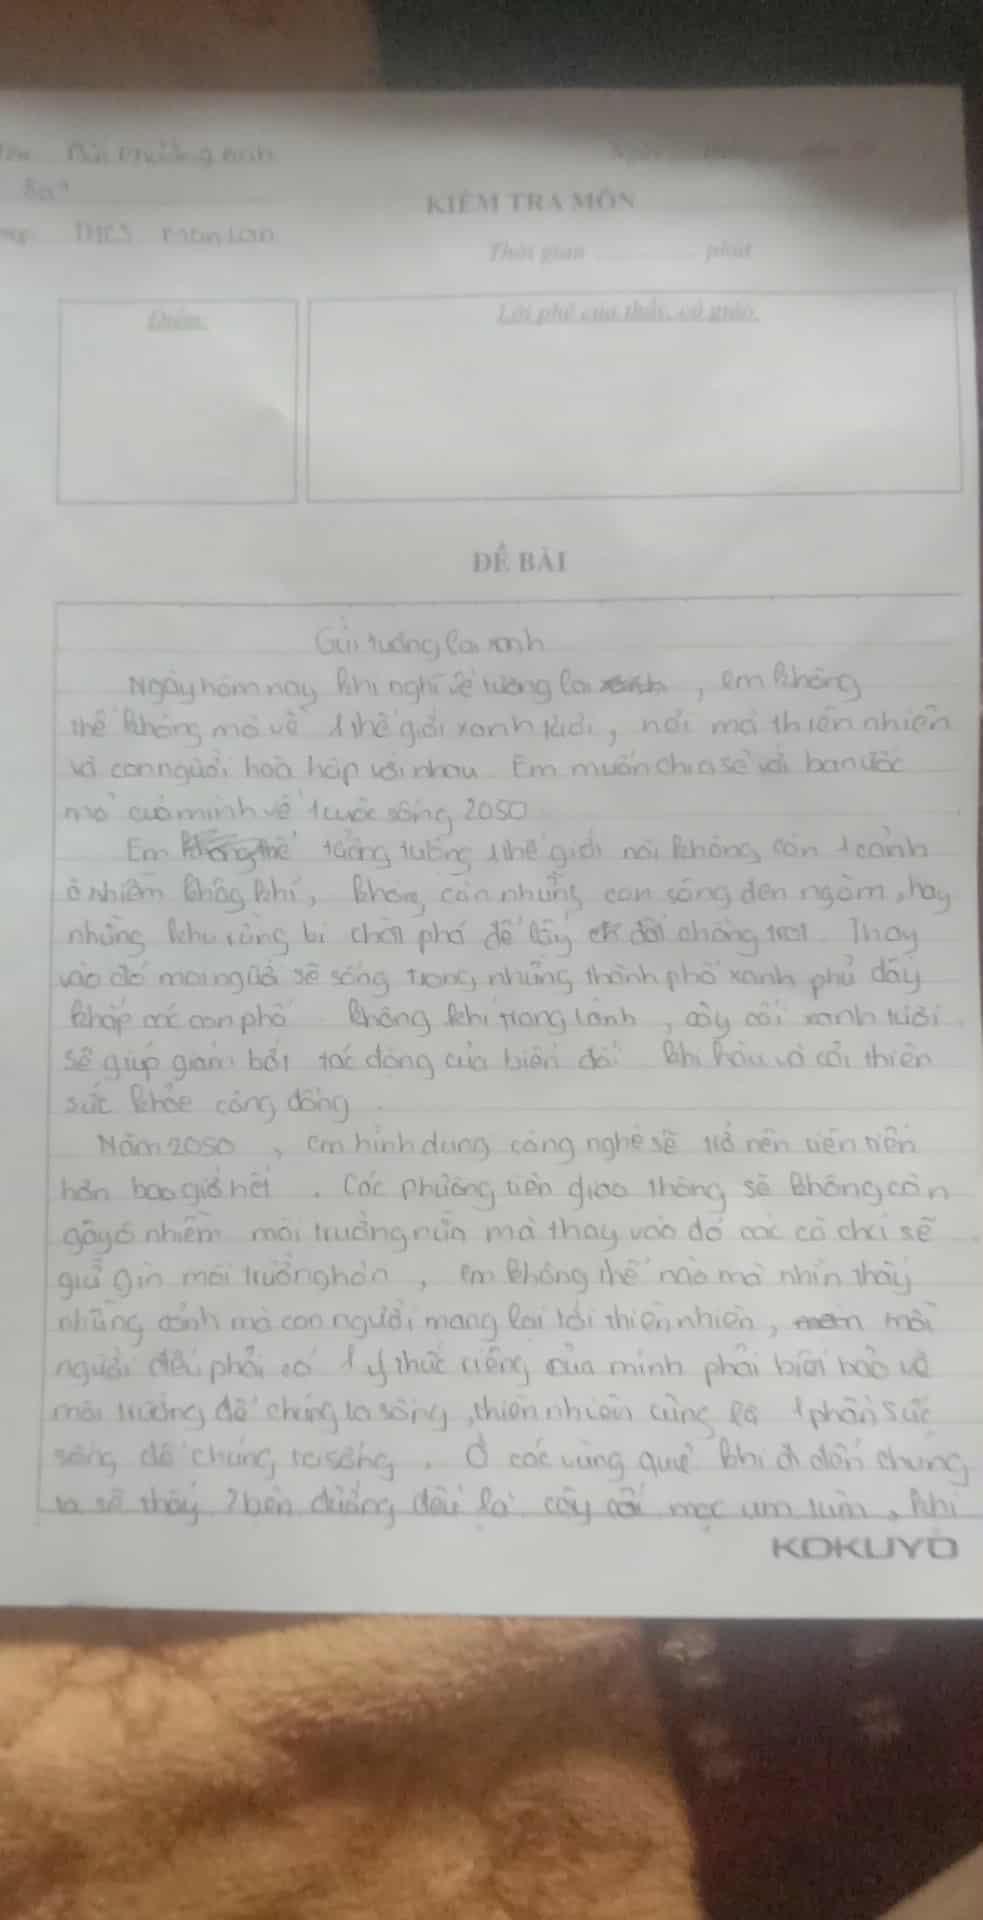 Bùi Phương Anh
8a
THCS
KIỂM TRA MÔN
Thời gian ............ phút
Điểm:
Lời phê của thầy, cô giáo.
ĐỀ BÀI
Gửi tương lai xanh
Ngày hôm nay khi nghĩ về tương lai, em không
thể không mơ về 1 thế giới xanh tươi, nơi mà thiên nhiên
và con người hoà hợp với nhau. Em muốn chia sẻ với bạn ước
mơ của mình về cuộc sống 2050
Em tưởng tượng 1 thế giới nơi không còn 1 cảnh
ô nhiễm không khí, không còn những con sông đen ngòm, hay
những khu rừng bị chặt phá để lấy đất đồi chồng trọt. Thay
vào đó mọi người sẽ sống trong những thành phố xanh phủ đầy
khắp các con phố. không khí trong lành, cây cối xanh tươi
sẽ giúp giảm bớt tác động của biến đổi khí hậu và cải thiện
sức khỏe cộng đồng.
Năm 2050, em hình dung công nghệ sẽ trở nên tiên tiến
hơn bao giờ hết. Các phương tiện giao thông sẽ không còn
gây ô nhiễm môi trường nữa mà thay vào đó các cô chú sẽ
giữ gìn môi trường hơn, em không thể nào mà nhìn thấy
những cảnh mà con người mang lại tới thiên nhiên, mỗi
người đều phải có 1 ý thức riêng của mình phải biết bảo vệ
môi trường để chúng ta sống, thiên nhiên cũng là 1 phần sức
sống để chúng ta sống. Ở các vùng quê khi đi đến chúng
ta sẽ thấy 2 bên đường đều là cây cối mọc um tùm, khi
KOKUYO